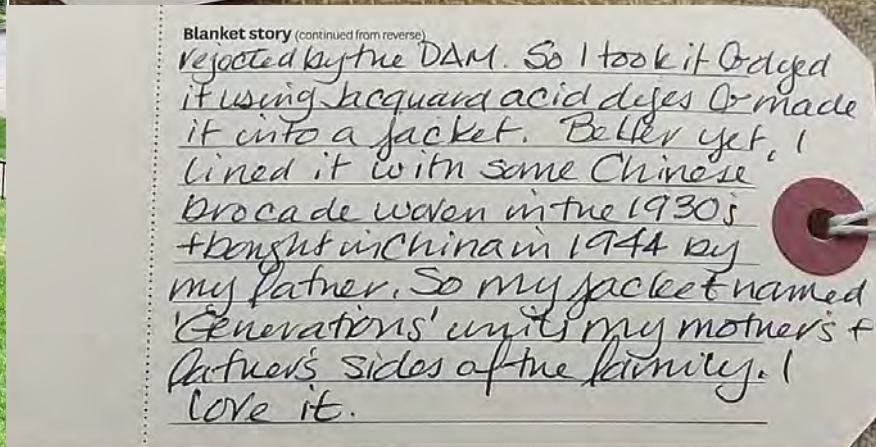 Blanket story (continued from reverse)
rejected by the DAM. So I took it & dyed
it using Jacquard acid dyes & made
it into a jacket. Better yet, I
lined it with some Chinese
brocade woven in the 1930s
+ bought in China in 1944 by
my father. So my jacket named
'Generations' units my mother's +
father's sides of the family. I
love it.